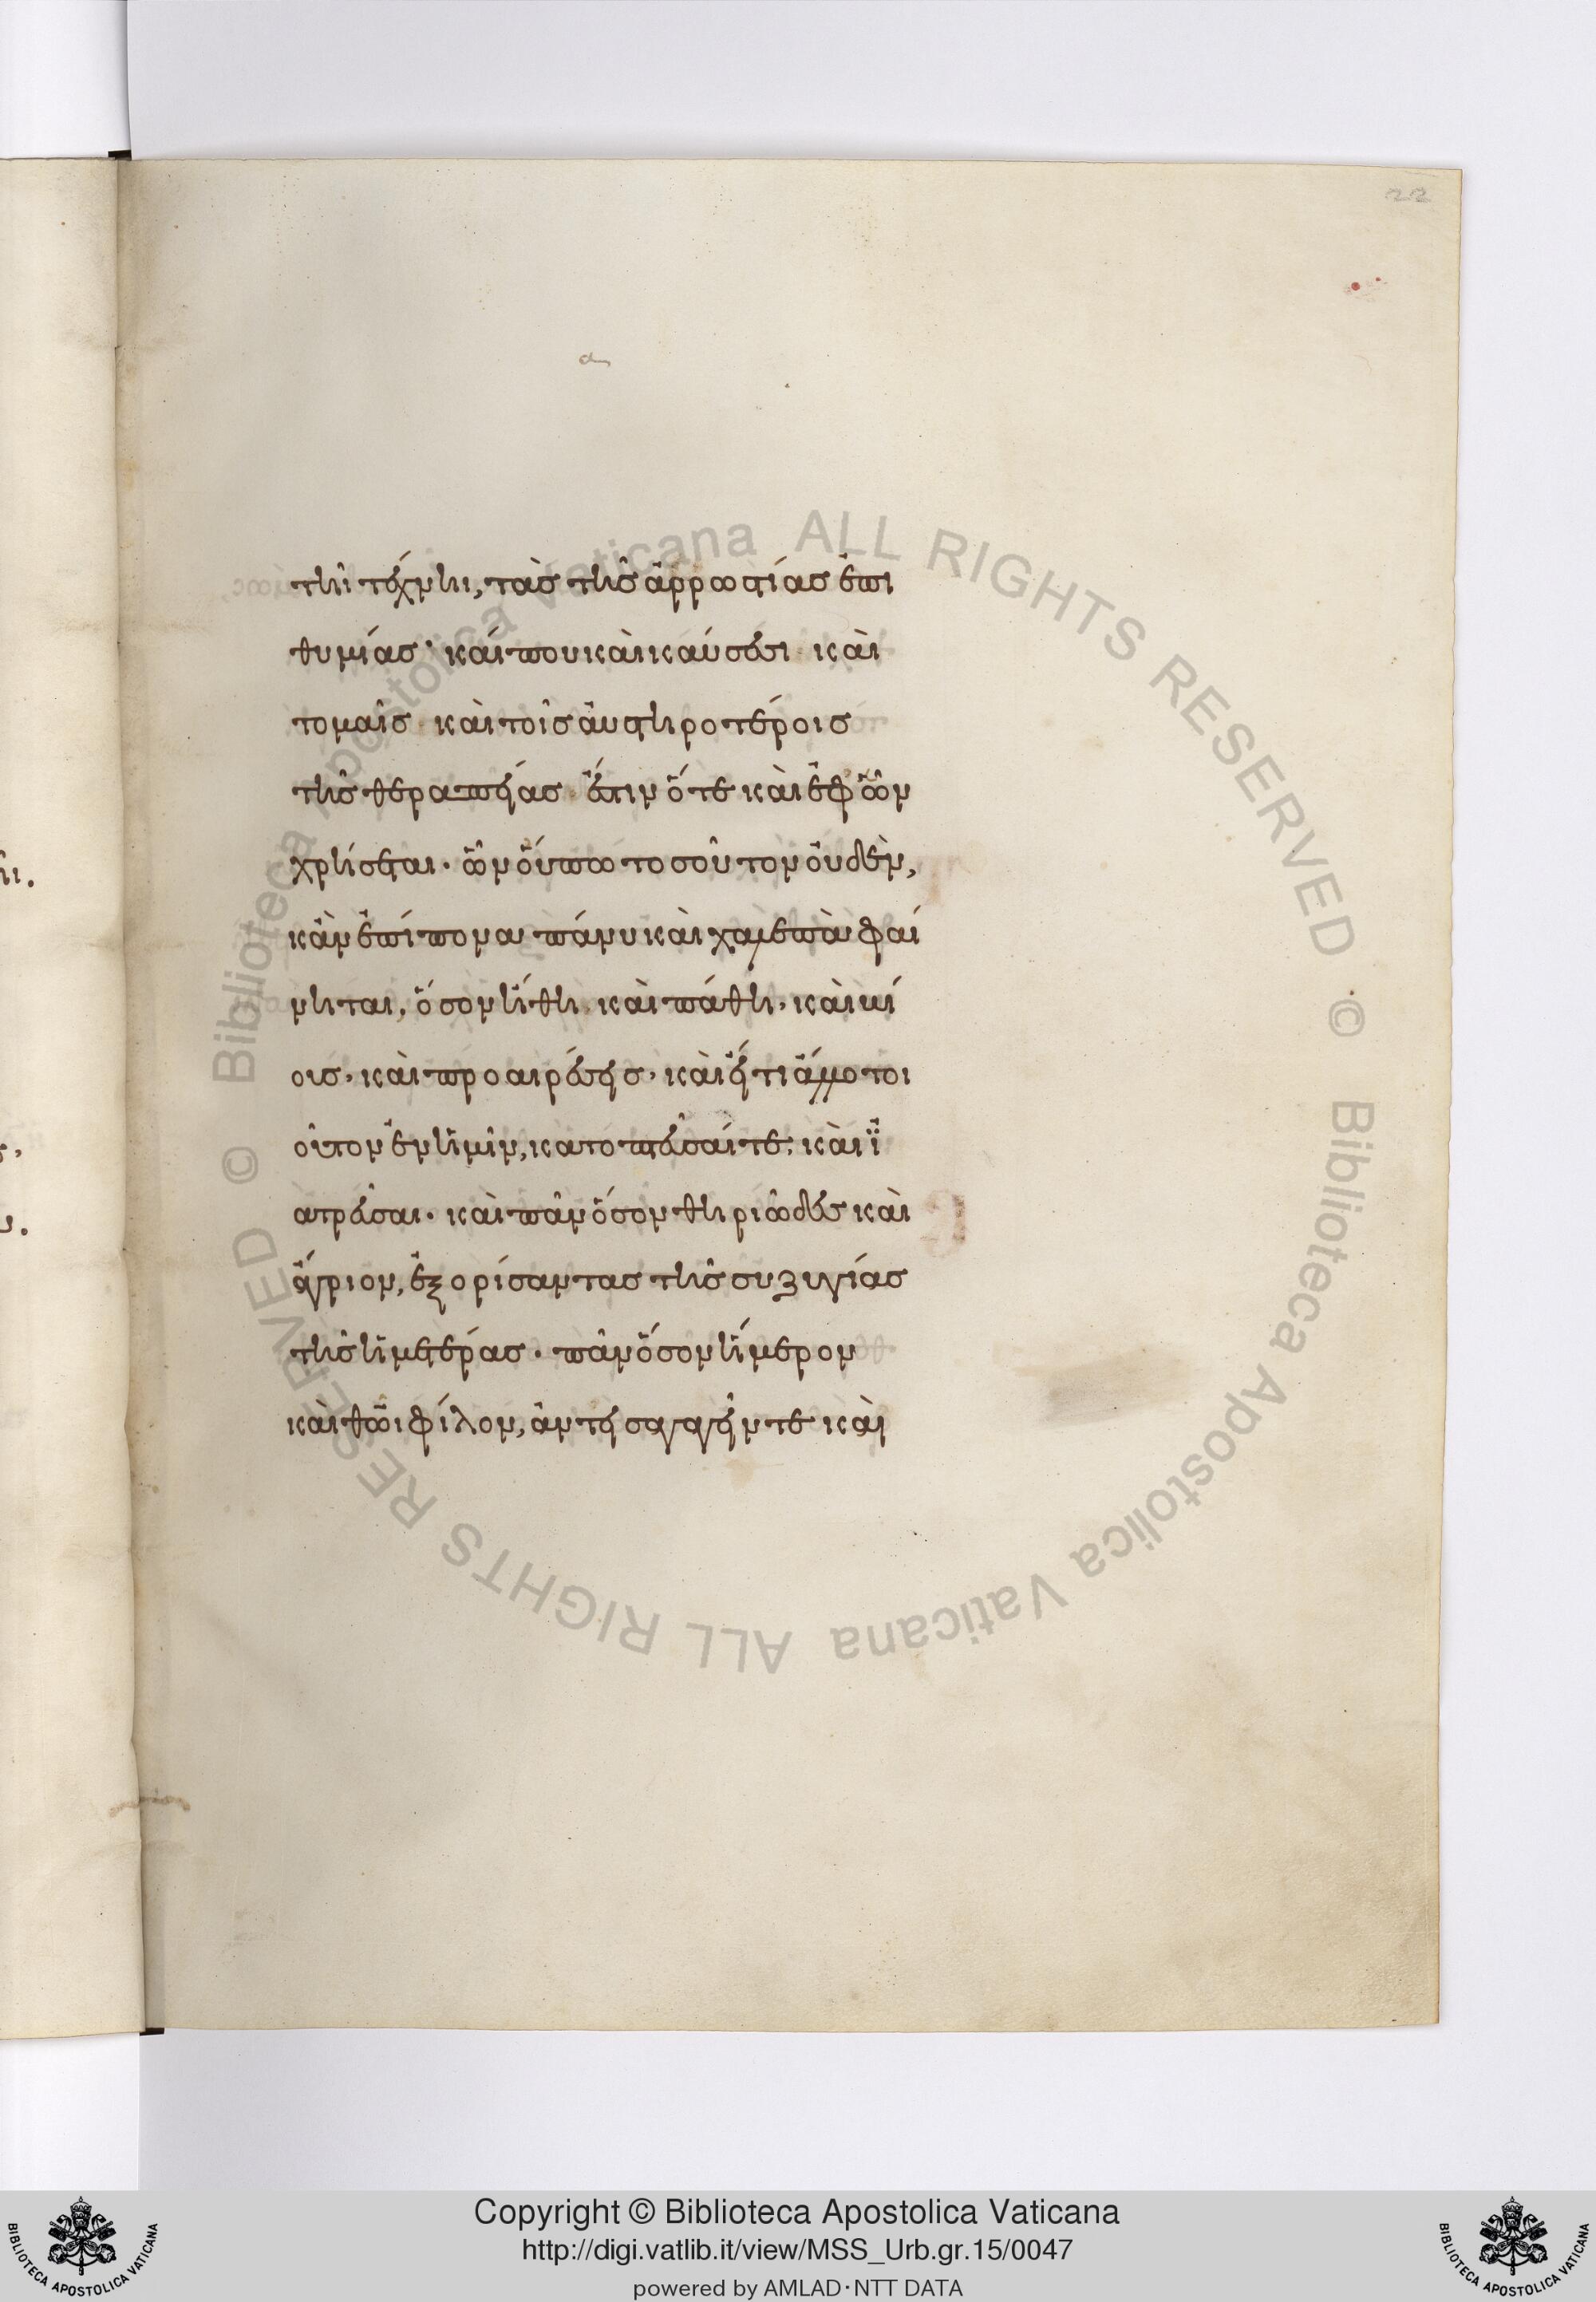 22
τῆι τέχνηι, τὰς τῆς ἀρρωστίας ἐπι
θυμίας· καί που καὶ καύσεσι καὶ
τομαῖς καὶ τοῖς αὐστηροτέροις
τῆς θεραπείας ἔστιν ὅτε καὶ ἐφ ὧν
χρήσεται. ὧν οὔπω τοσοῦτον οὐδὲν,
κἂν ἐπίπονα πάνυ καὶ χαλεπὰ φαί
νηται, ὅσον ἤθη καὶ πάθη, καὶ βί
οις, καὶ προαιρέσεις, καὶ εἴ τι ἄλλο τοι
οῦτον ἐν ἡμῖν, κατοπτεῦσαί τε, καὶ ἰ
ατρεῦσαι. καὶ πᾶν ὅσον θηριῶδες καὶ
ἄγριον, ἐξορίσαντας τῆς συζυγίας
τῆς ἡμετέρας. πᾶν ὅσον ἥμερον
καὶ θεῶι φίλον, ἀντεισαγαγεῖν τε καὶ
Biblioteca Apostolica Vaticana ALL RIGHTS RESERVED © Biblioteca Apostolica Vaticana ALL RIGHTS RESERVED ©
Copyright © Biblioteca Apostolica Vaticana
http://digi.vatlib.it/view/MSS_Urb.gr.15/0047
powered by AMLAD·NTT DATA
BIBLIOTECA APOSTOLICA VATICANA
BIBLIOTECA APOSTOLICA VATICANA